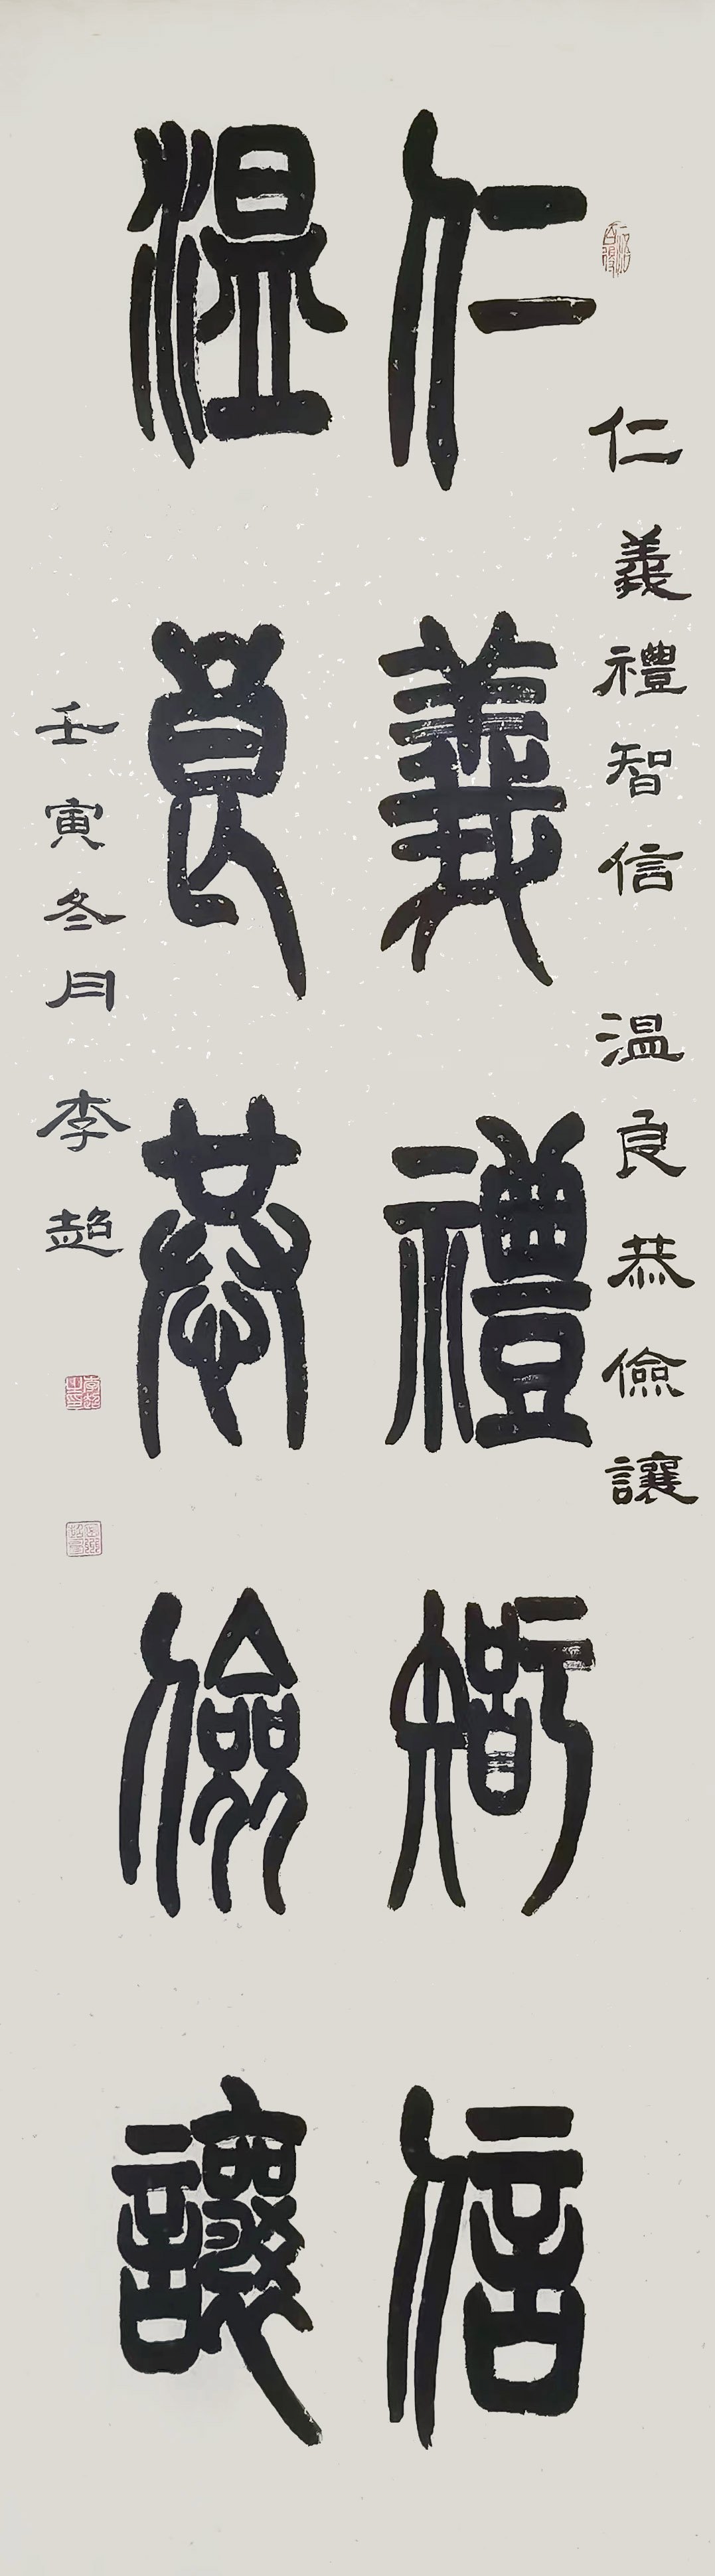 仁義禮智信
溫良恭儉讓
仁義禮智信 溫良恭儉讓
壬寅冬月 李超
李超之印